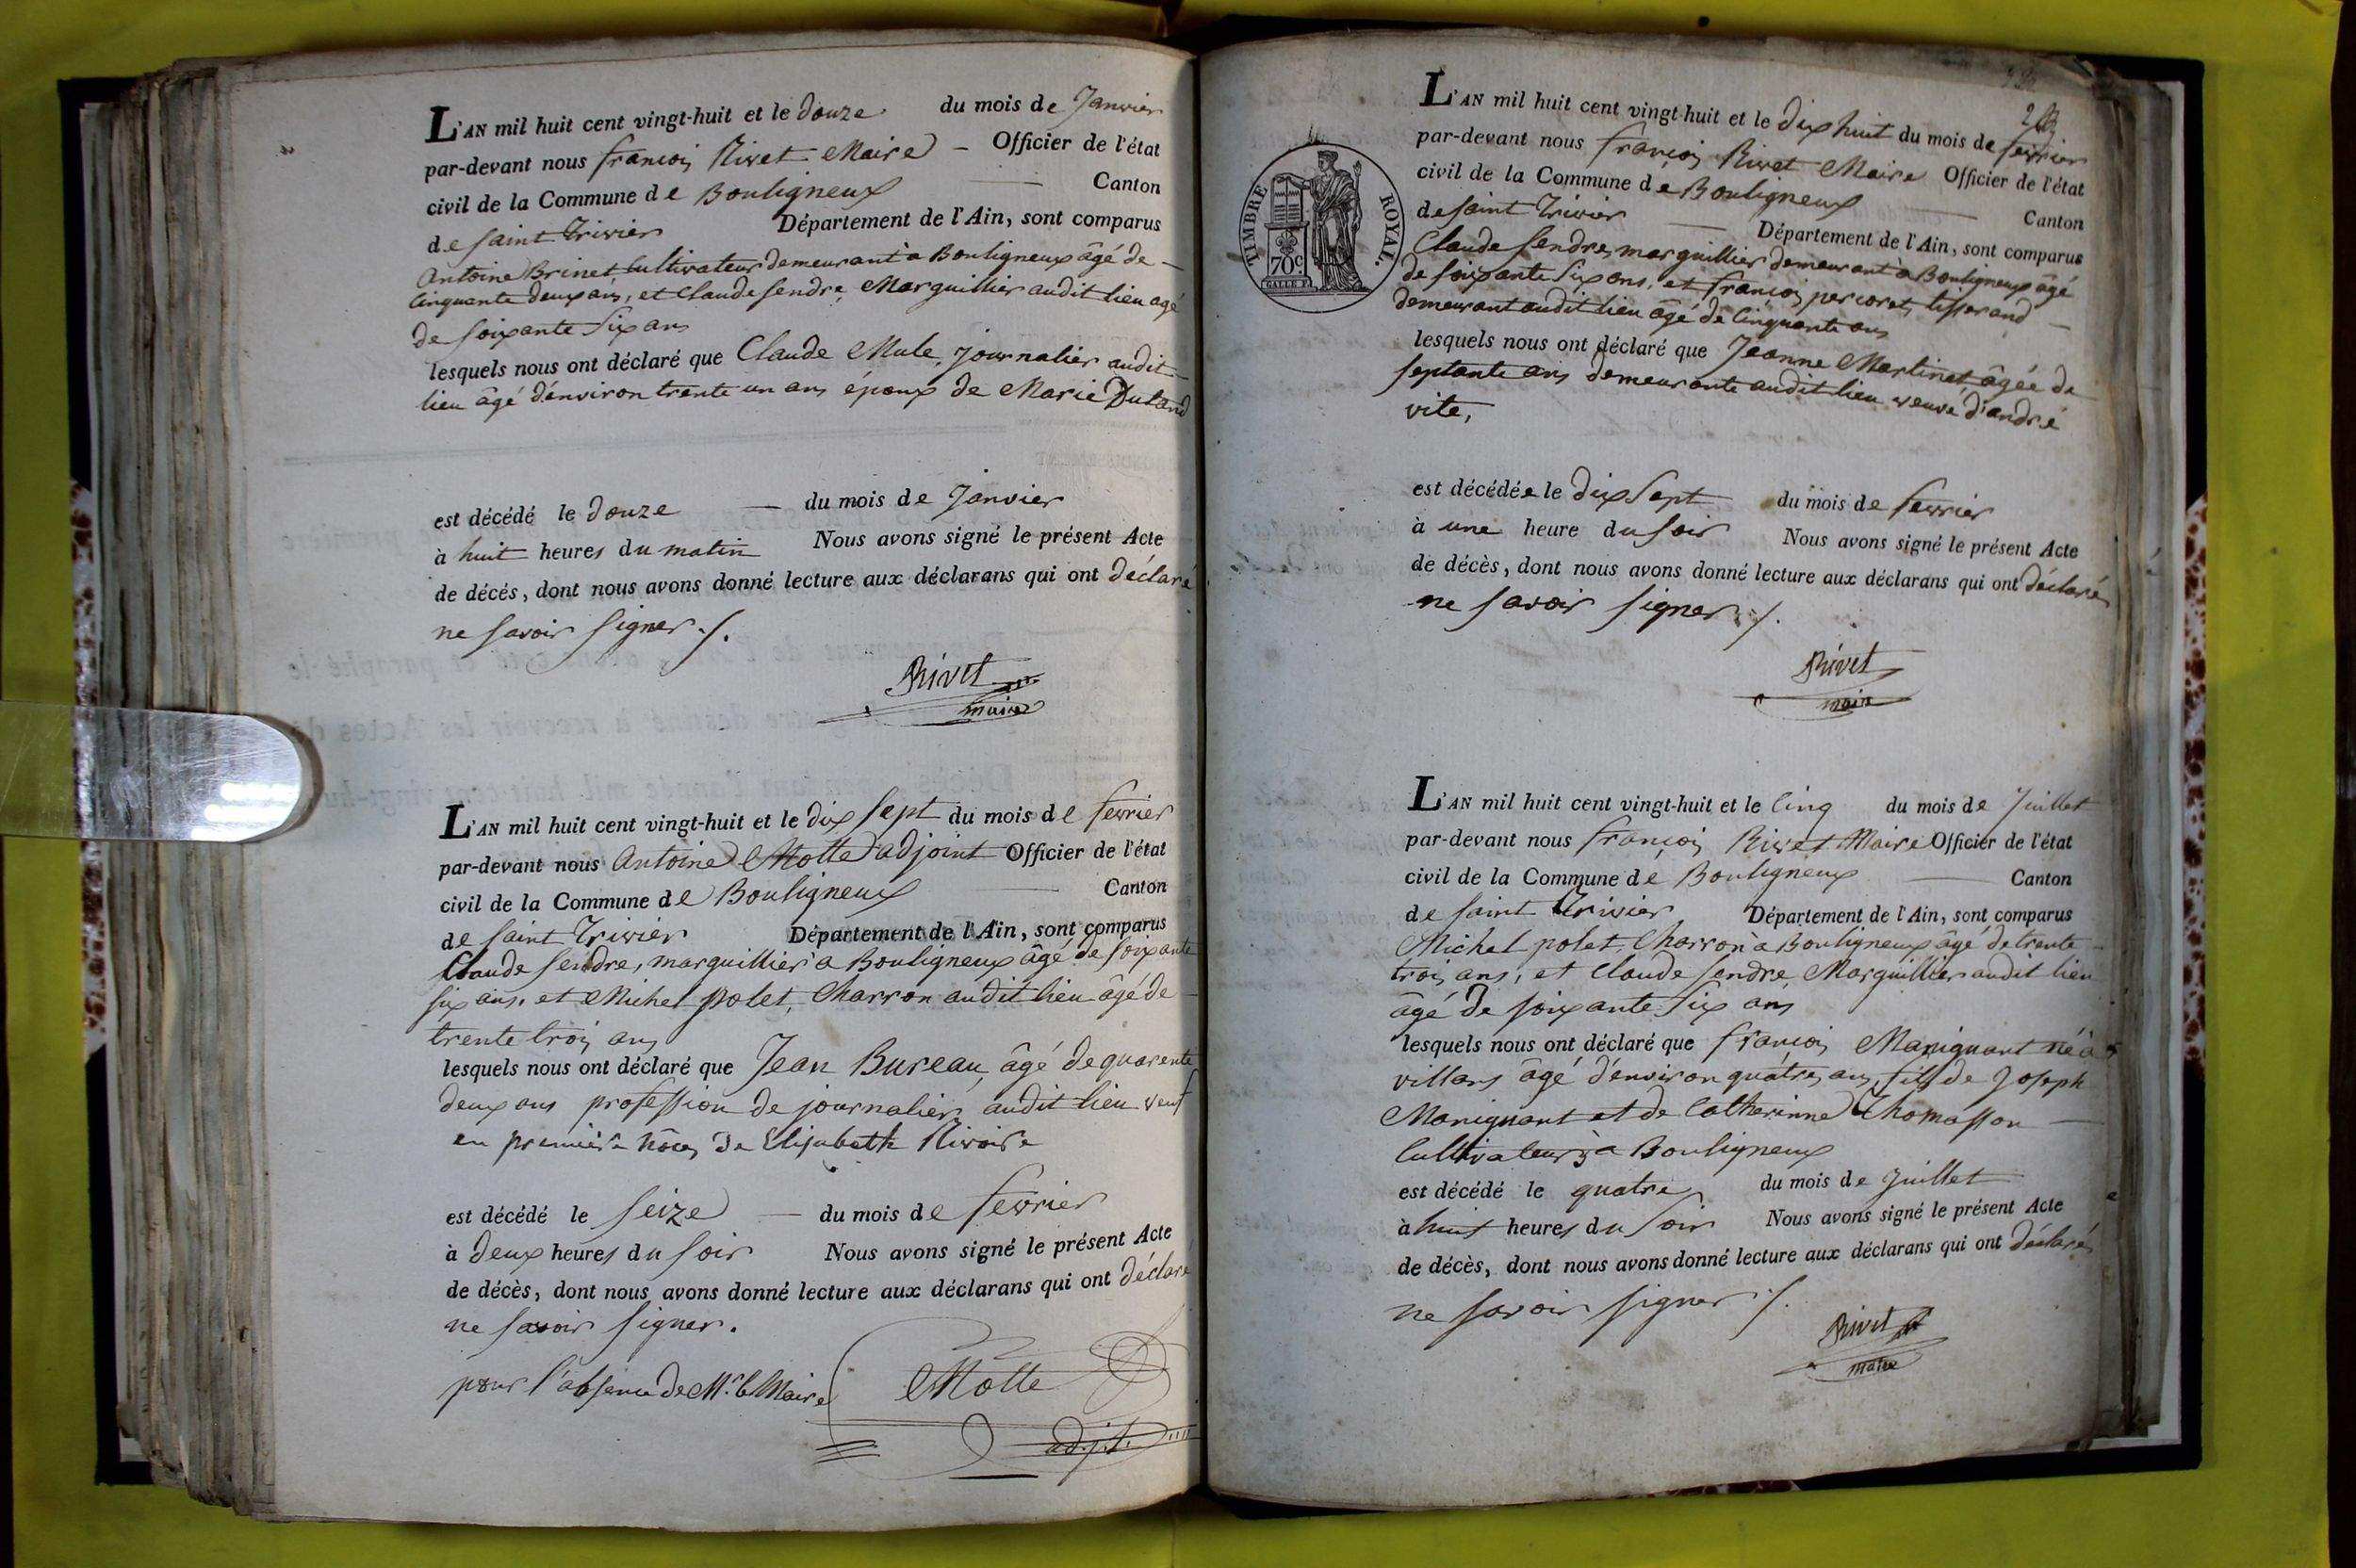 L'AN mil huit cent vingt-huit et le douze du mois de Janvier
par-devant nous françois Rivet Maire – Officier de l'état
civil de la Commune de Bouligneux — Canton
de saint Trivier Département de l'Ain, sont comparus
Antoine Brinet Cultivateur demeurant à Bouligneux âgé de –
Cinquante deux ans, et Claude Sendre, Marguillier audit lieu agé
de soixante six ans
lesquels nous ont déclaré que Claude Mule, journalier audit
lieu âgé d'environ trente un ans époux de Marie Dutand
est décédé le douze — du mois de Janvier
à huit heures du matin Nous avons signé le présent Acte
de décés, dont nous avons donné lecture aux déclarans qui ont déclaré
ne savoir signer ./.
Rivet
maire
L'AN mil huit cent vingt-huit et le dix sept du mois de fevrier
par-devant nous Antoine Motte adjoint Officier de l'état
civil de la Commune de Bouligneux — Canton
de saint Trivier Département de l'Ain, sont comparus
Claude Sendre, marguillier a Bouligneux âgé de soixante
six ans. et Michel polet, Charron audit lieu âgé de –
trente trois ans
lesquels nous ont déclaré que Jean Bureau, âgé de quarente
deux ans profession de journalier, audit lieu veuf
en premiere nôces de Elisabeth Rivoire
est décédé le seize — du mois de fevrier
à deux heures du soir Nous avons signé le présent Acte
de décès, dont nous avons donné lecture aux déclarans qui ont déclaré
ne savoir signer.
pour l'absence de Mr le Maire Motte
adjt.
TIMBRE ROYAL.
70c.
L'AN mil huit cent vingt-huit et le dix huit du mois de fevrier
par-devant nous françois Rivet Maire Officier de l'état
civil de la Commune de Bouligneux — Canton
de saint Trivier — Département de l'Ain, sont comparus
Claude Sendre, marguillier demeurant à Bouligneux âgé
de soixante six ans, et françois percoret, tisserand –
demeurant audit lieu âgé de Cinquante ans
lesquels nous ont déclaré que Jeanne Martinet âgée de
septante ans demeurante audit lieu veuve d'andré
vite,
est décédée le dix sept du mois de fevrier
à une heure du soir Nous avons signé le présent Acte
de décès, dont nous avons donné lecture aux déclarans qui ont déclaré
ne savoir signer ./.
Rivet
maire
L'AN mil huit cent vingt-huit et le Cinq du mois de Juillet
par-devant nous françois Rivet Maire Officier de l'état
civil de la Commune de Bouligneux — Canton
de saint Trivier Département de l'Ain, sont comparus
Michel polet, Charron à Bouligneux âgé de trente –
trois ans, et Claude Sendre, Marguillier audit lieu
âgé de soixante six ans
lesquels nous ont déclaré que françois Manignant né à
villars âgé d'environ quatre ans, fils de Joseph
Manignant et de Catherinne Thomasson —
Cultivateurs a Bouligneux
est décédé le quatre du mois de Juillet
à huit heures du soir Nous avons signé le présent Acte
de décès, dont nous avons donné lecture aux déclarans qui ont déclaré
ne savoir signer ./.
Rivet
maire